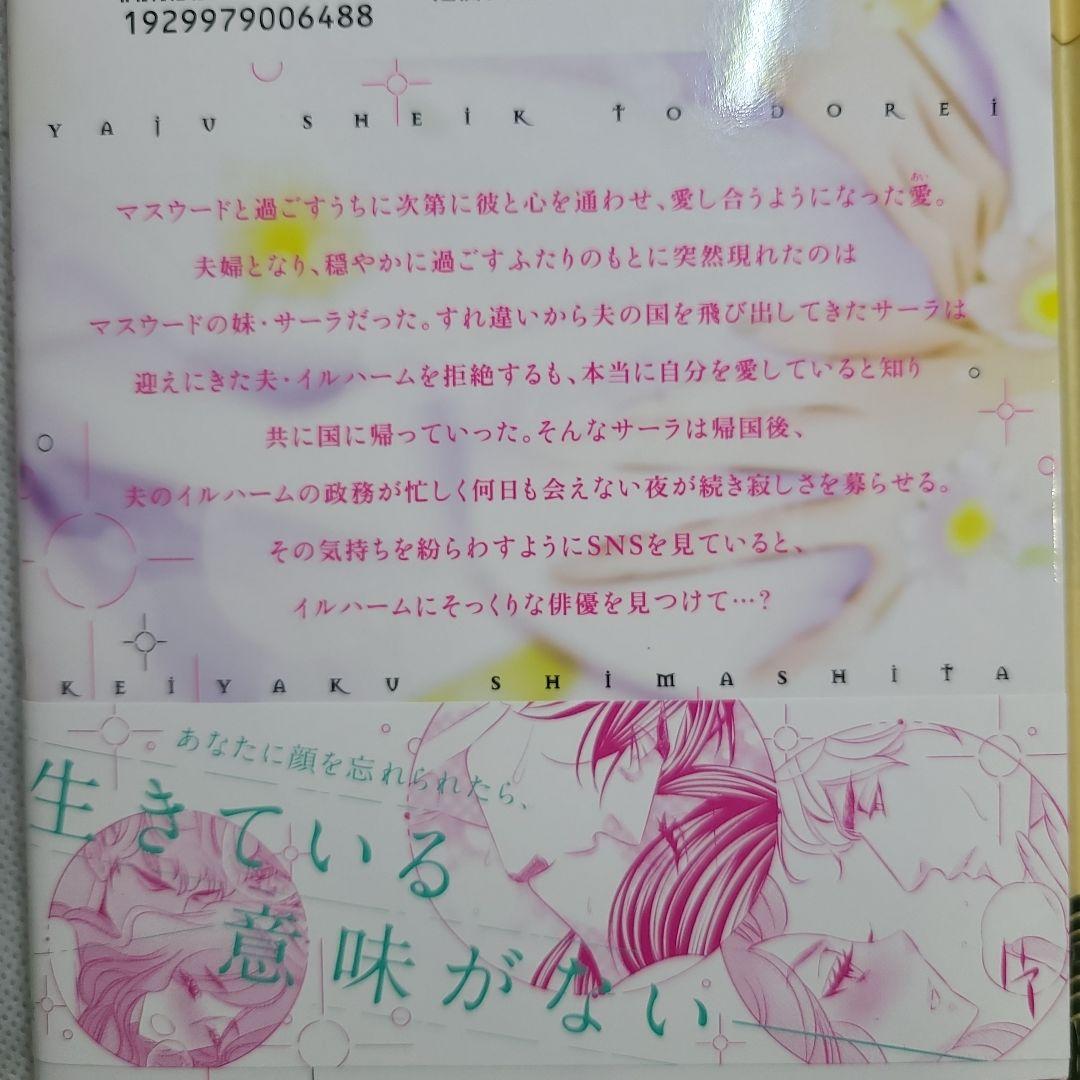 1929979006488
YAJU SHEIK TO DOREI
マスウードと過ごすうちに次第に彼と心を通わせ、愛し合うようになった愛。
あい
夫婦となり、穏やかに過ごすふたりのもとに突然現れたのは
マスウードの妹・サーラだった。すれ違いから夫の国を飛び出してきたサーラは
迎えにきた夫・イルハームを拒絶するも、本当に自分を愛していると知り
共に国に帰っていった。そんなサーラは帰国後、
夫のイルハームの政務が忙しく何日も会えない夜が続き寂しさを募らせる。
その気持ちを紛らわすようにSNSを見ていると、
イルハームにそっくりな俳優を見つけて…?
KEIYAKU SHIMASHITA
あなたに顔を忘れられたら、
生きている
意味がない